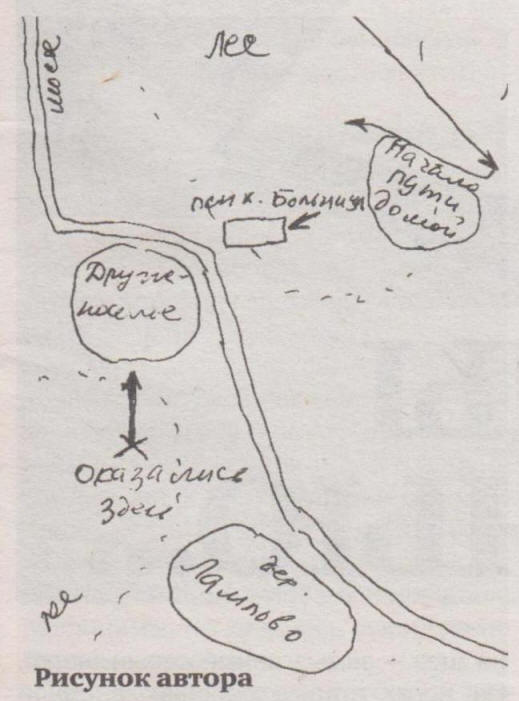 лес
шоссе
Начало
пути
домой
псих. больница
Друже-
поселье
Оказались
здесь
дер.
Лампово
лес
Рисунок автора